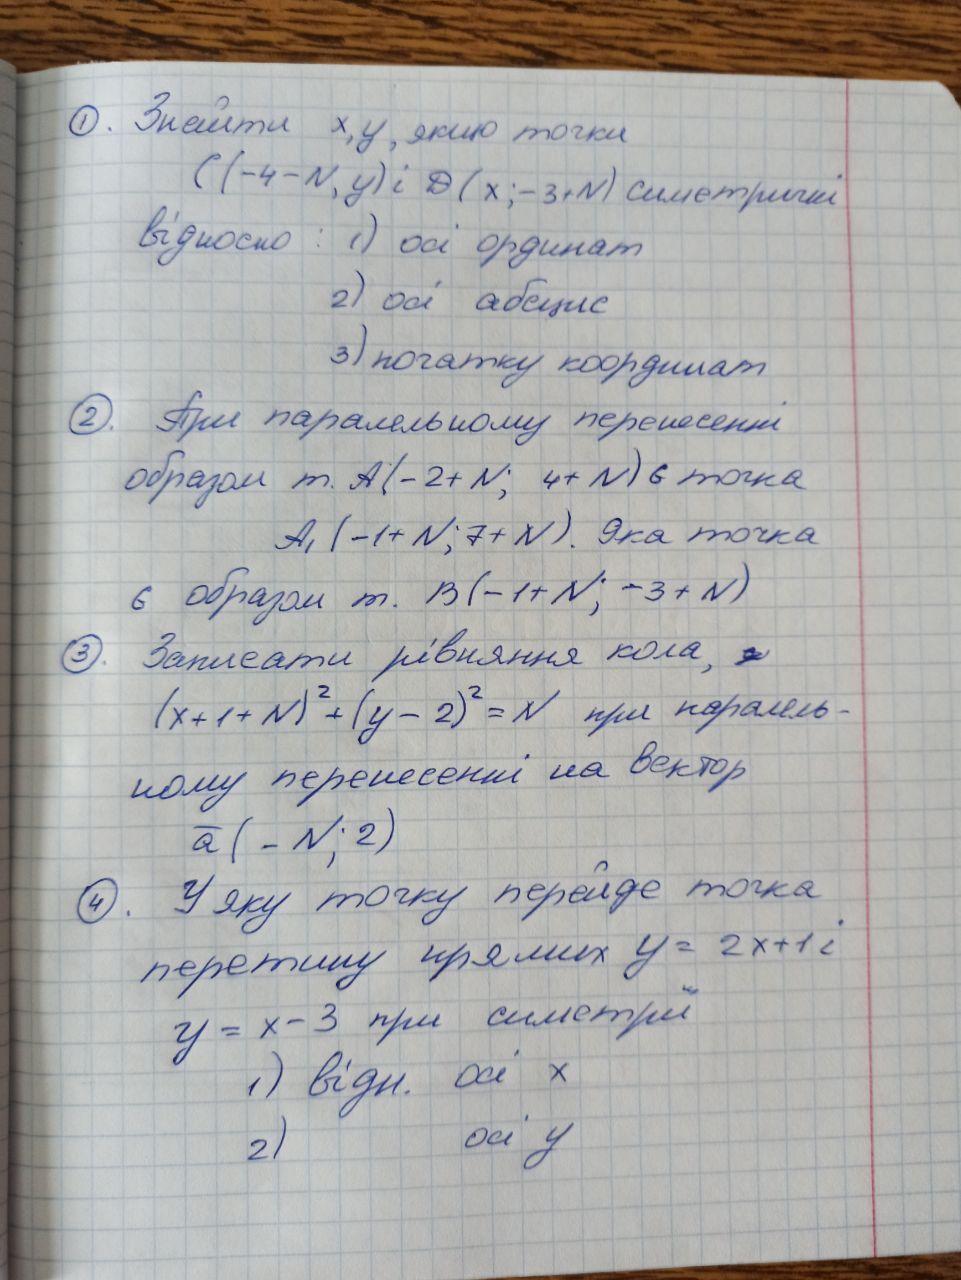 ①. Знайти x, y, якщо точки
C (-4-N, y) і D (x; -3+N) симетричні
відносно : 1) осі ординат
2) осі абсцис
3) початку координат
②. При паралельному перенесенні
образом т. A(-2+N; 4+N) є точка
A₁ (-1+N; 7+N). Яка точка
є образом т. B(-1+N; -3+N)
③. Записати рівняння кола,
(x+1+N)²+(y-2)²=N при паралель-
ному перенесенні на вектор
a̅ (-N; 2)
④. У яку точку перейде точка
перетину прямих y = 2x+1 і
y = x-3 при симетрії
1) відн. осі x
2) осі y